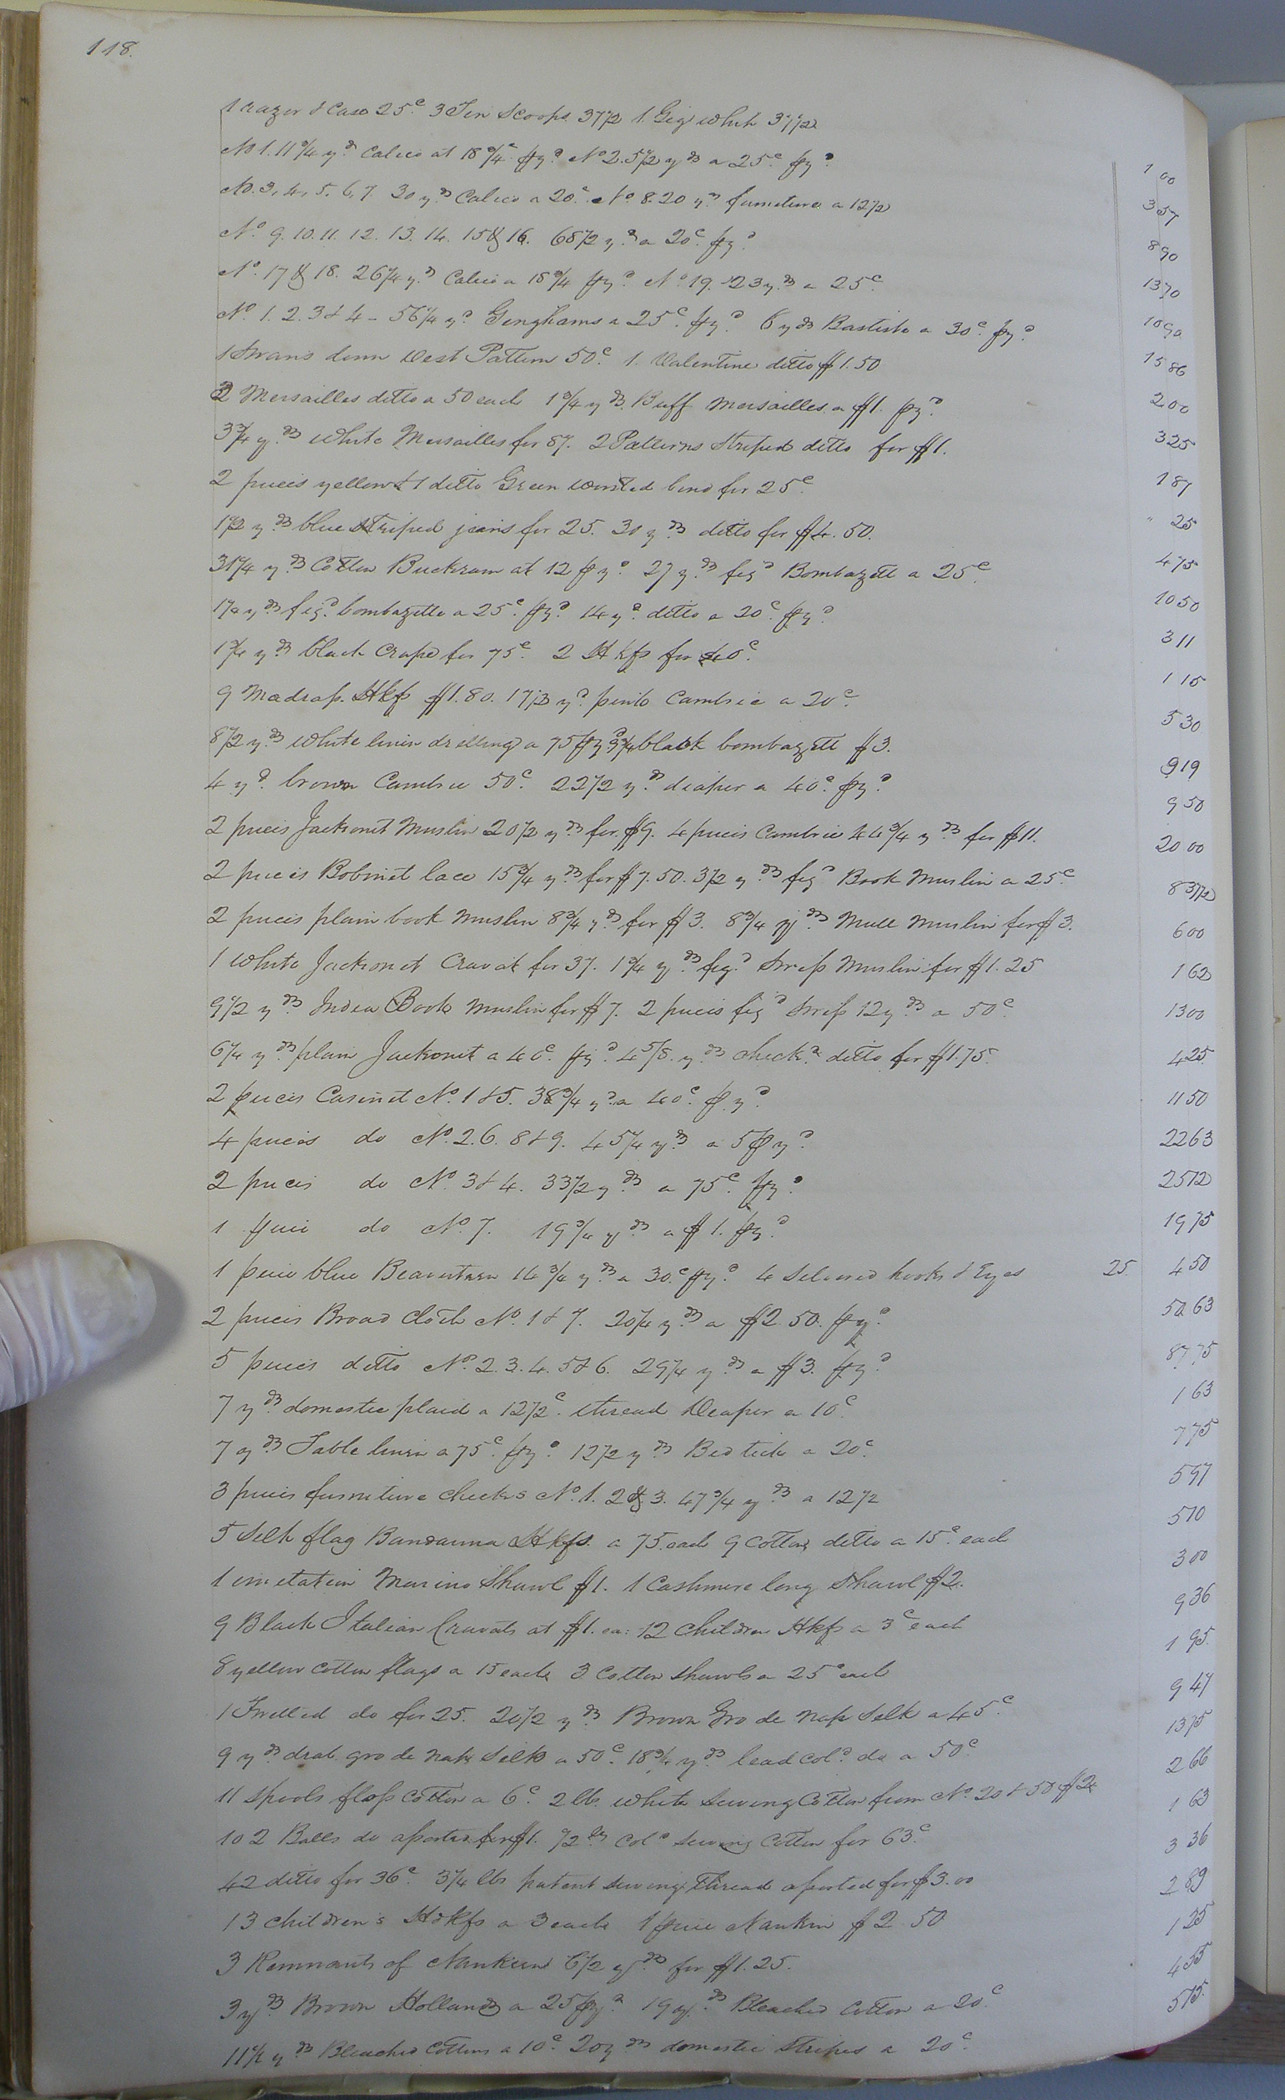 118.
1 razor & Case 25c. 3 Tin Scoops 37½ 1 Gig whip 37½ 1 00
No 1. 11¾ yds Calico at 18¾c pyd No 2. 5½ yds a 25c pyd 3 57
No. 3, 4, 5, 6, 7. 30 yds Calico a 20c No 8. 20 yds furniture a 12½ 8 90
No. 9. 10. 11. 12. 13. 14. 15 & 16. 68½ yds a 20c pyd 13 70
No. 17 & 18. 26¼ yds Calico a 18¾ pyd No. 19. 23 yds a 25c 10 90
No. 1. 2. 3 & 4 - 56¼ yd Ginghams a 25c pyd 6 yds Bastiste a 30c pyd 15 86
1 Swans down vest Pattern 50c. 1. Valentine ditto $1.50 2 00
3 Mersailles ditto a 50 each 1¾ yds Buff Mersailles a $1. pyd 3 25
3¾ yds White Mersailles for 87. 2 Patterns Striped ditto for $1. 1 87
2 pieces yellow & 1 ditto Green worsted bind for 25c " 25
1½ yds blue Striped jeans for 25. 30 yds ditto for $4.50. 4 75
31¼ yds Cotton Buckram at 12 pyd 27 yds figd Bombazett a 25c 10 50
1¼ yds figd bombazette a 25c pyd 14 yd ditto a 20c pyd 3 11
1¾ yds black Crape for 75c. 2 Hkfs for 40c. 1 15
9 Madrap. Hkfs $1.80. 17½ yd pinto Cambric a 20c 5 30
8½ yds White linin drilling a 75 pyd 3¾ black bombazett $3. 9 19
4 yd. brown Cambric 50c. 22½ yds diaper a 40c pyd 9 50
2 pieces Jackonet Muslin 20½ yds for $9. 4 pieces Cambric 44¾ yds for $11. 20 00
2 pieces Bobinet lace 15¾ yds for $7.50. 3½ yds figd Book Muslin a 25c 8 37½
2 pieces plain book Muslin 8¾ yds for $3. 8¾ yds Mull Muslin for $3. 6 00
1 White Jackonet Cravat for 37. 1¾ yds figd Swiss Muslin for $1.25 1 62
9½ yds India Book Muslin for $7. 2 pieces figd Swiss 12 yds a 50c 13 00
6¼ yds plain Jackonet a 40c. pyd 4⅝ yds checkd ditto for $1.75. 4 25
2 pieces Casinet No. 1 & 5. 38¾ yd a 40c pyd 11 50
4 pieces do No. 2. 6. 8 & 9. 45¼ yds a 5 pyd 22 63
2 pieces do No. 3 & 4. 33½ yds a 75c. pyd 25 12
1 piece do No. 7. 19¾ yds a $1. pyd 19 75
1 piece blue Beaverteen 14¾ yds a 30c pyd 4 Silvered hooks & Eyes 25. 4 50
2 pieces Broad Cloth No. 1 & 7. 20¼ yds a $2.50. pyd 50 63
5 pieces ditto No. 2. 3. 4. 5 & 6. 29¼ yds a $3. pyd 87 75
7 yds domestic plaid a 12½c. thread Deaper a 10c. 1 63
7 yds Table linin a 75c. pyd 12½ yds Bed tick a 20c 7 75
3 pieces furniture checks No. 1. 2 & 3. 47¾ yds a 12½ 5 97
5 Silk flag Bandanna Hkfs. a 75. each 9 Cotton ditto a 15c each 5 10
1 imetation Marino Shawl $1. 1 Cashmere long Shawl $2. 3 00
9 Black Italian Cravats at $1. ea: 12 Children Hkfs a 3c each 9 36
8 yellow Cotton flags a 15 each 3 Cotton Shawls a 25c each 1 95
1 Twilled do for 25. 20½ yds Brown Gro de Nap Silk a 45c 9 47
9 yds drab gro de Nap Silk a 50c. 18¾ yds lead Cold do a 50c 13 75
11 Spools floss Cotton a 6c. 2 lbs white Sewing Cotton from No 20 & 50 $2 2 66
102 Balls do assorted for $1. ½ lb Cold Sewing Cotton for 63c. 1 63
42 ditto for 36c. 3¼ lbs patent sewing Thread assorted for $3.00 3 36
13 children's Hdkfs a 3 each 1 piece Nankin $2.50 2 89
3 Remnants of Nankeen 6½ yds for $1.25. 1 25
3 yds Brown Holland a 25 pyd 19 yds Bleached Cotton a 20c. 4 55
11½ yds Bleached Cottons a 10c. 20 yds domestic Stripes a 20c. 5 15